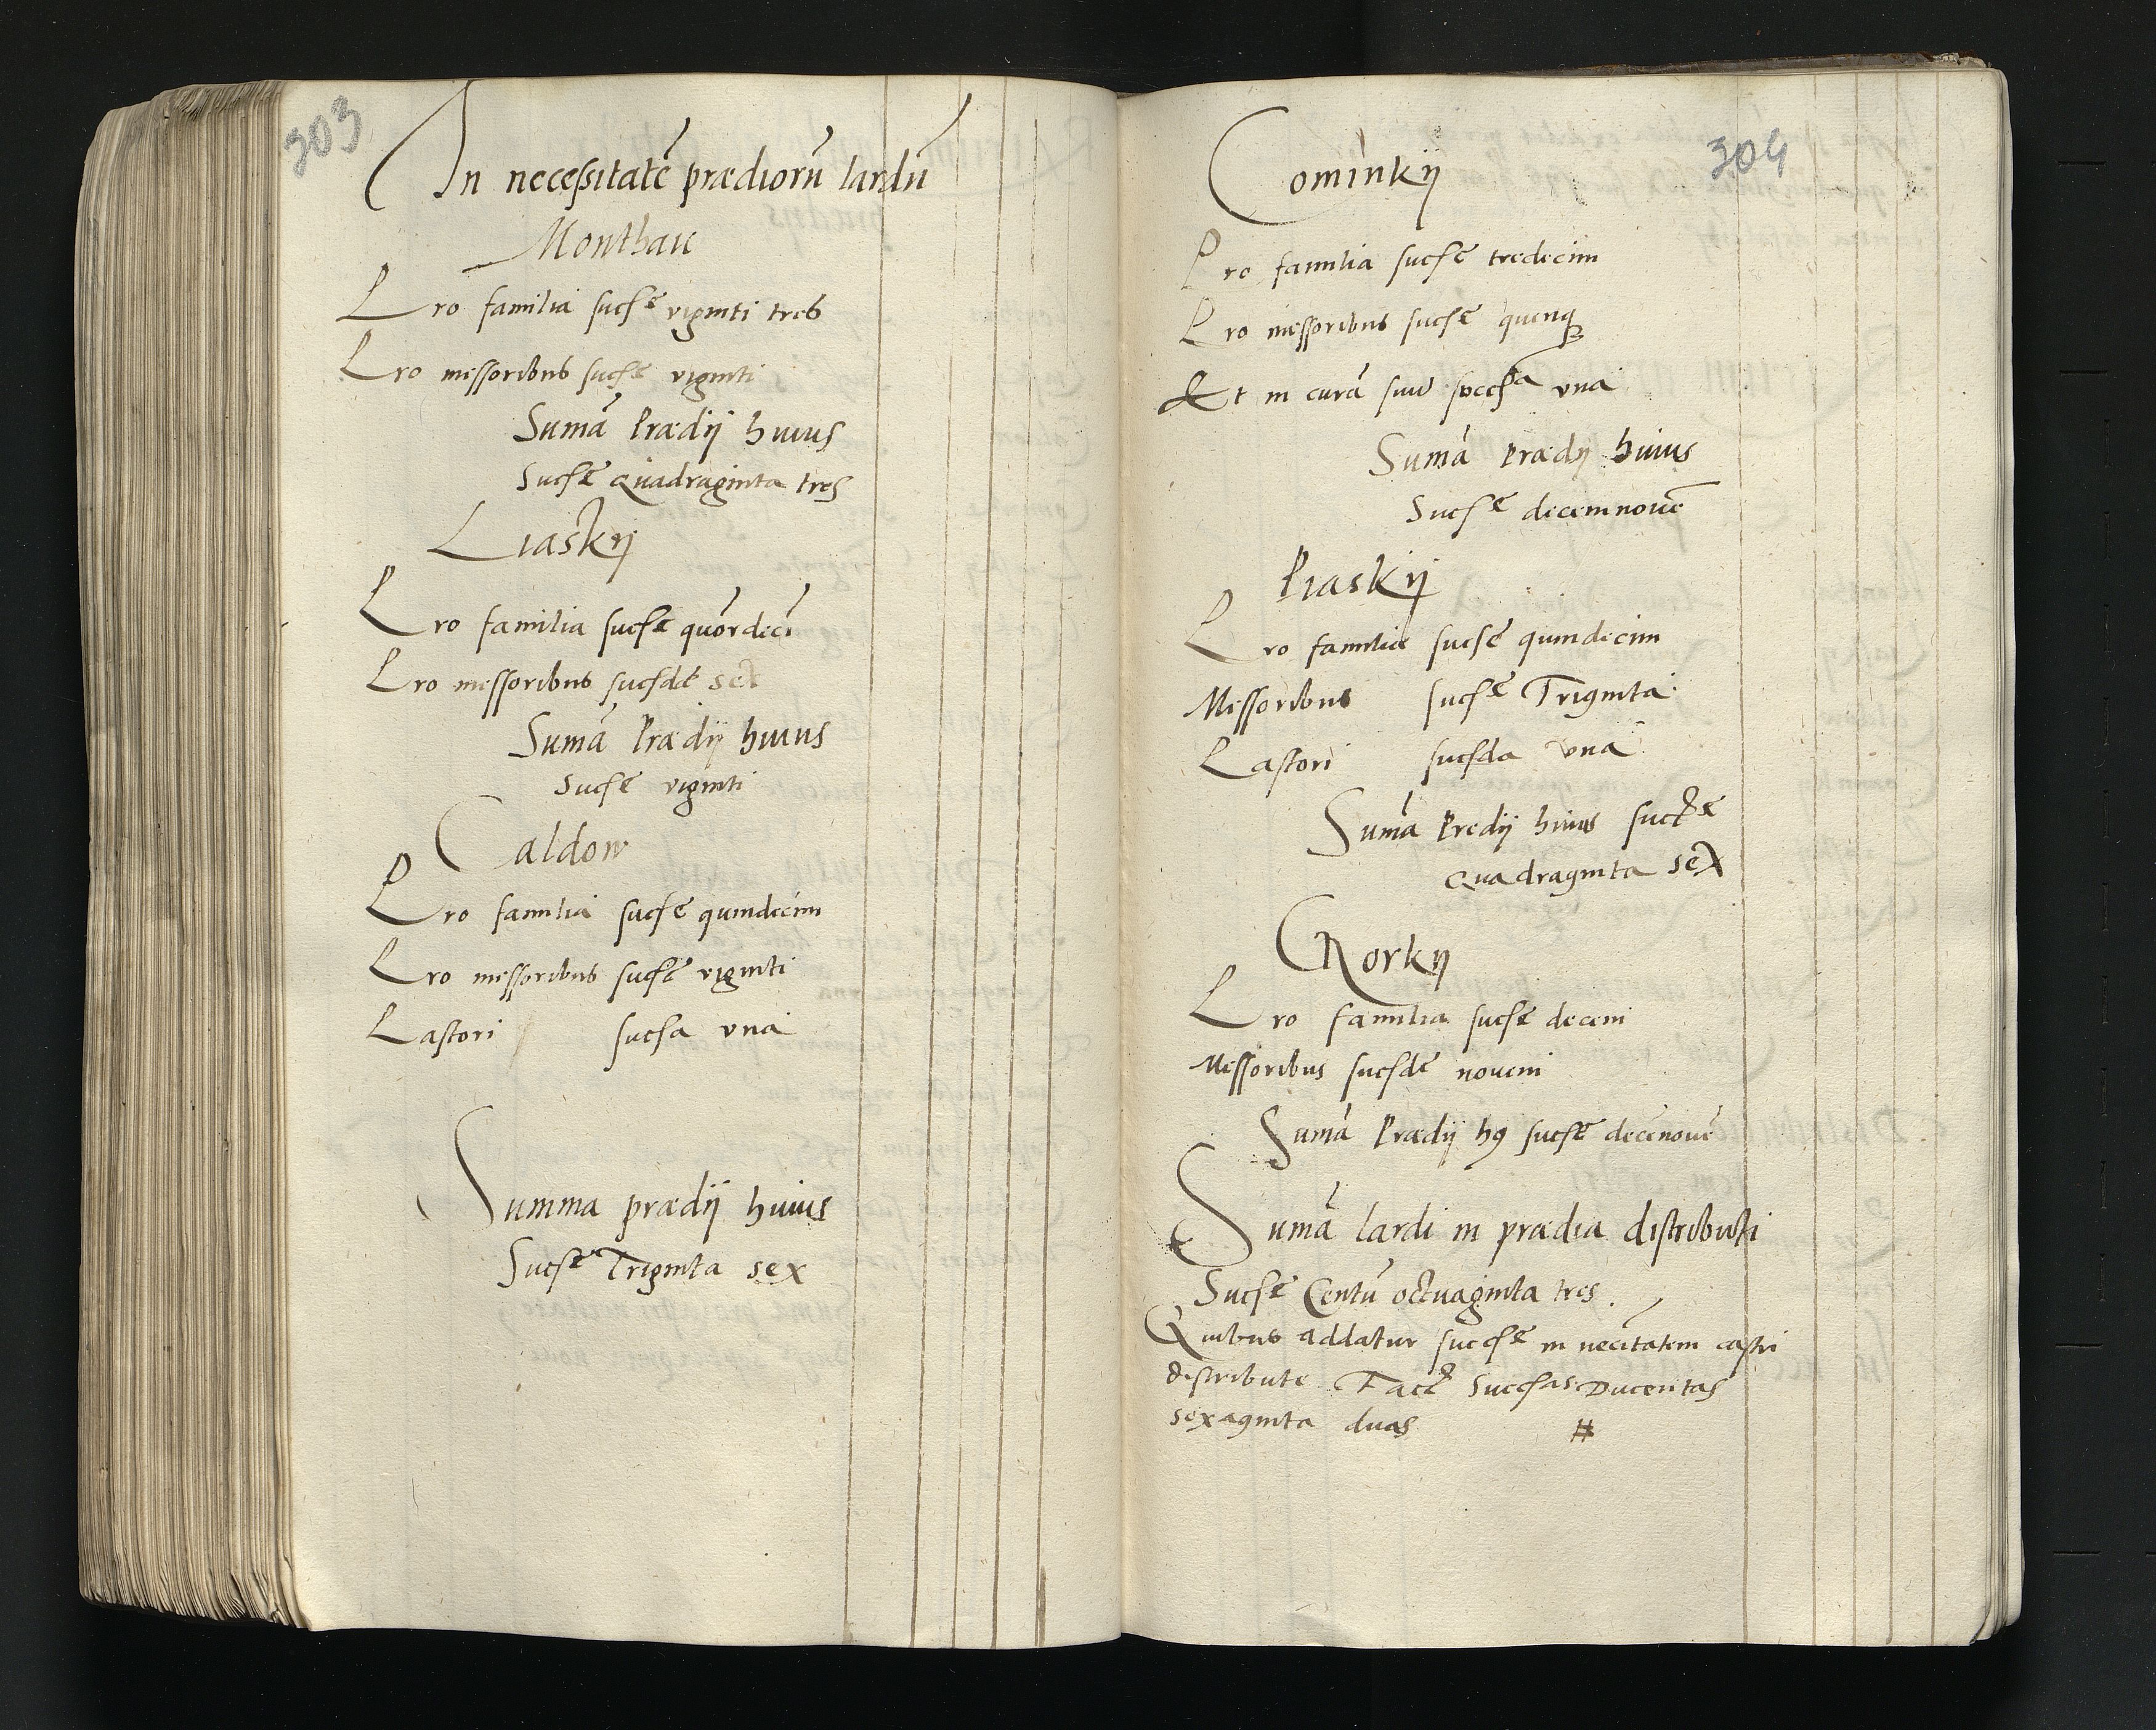 303
In necessitatē prædiorū lardū
Monthau
Pro familia sucsᵉ viginti tres
Pro messoribus sucsᵉ viginti
Sumā Prædij huius
Sucsᵉ quadraginta tres
Liaskij
Pro familia sucsᵉ quōrdecī
Pro messoribus sucsdᵉ sex
Sumā Prædij huius
Sucsᵉ viginti
Caldow
Pro familia sucsᵉ quindecim
Pro messoribus sucsᵉ viginti
Pastori sucsa una
Summa prædij huius
Sucsᵉ Triginta sex
304
Cominkij
Pro familia sucsᵉ tredecim
Pro messoribus sucsᵉ quinq
Et in curā una
Sumā Prædij huius
Sucsᵉ decemnovē
Piaskij
Pro familia sucsᵉ quindecim
Messoribus sucsᵉ Triginta
Pastori sucsda una
Sumā Predij huius sucsᵉ
quadraginta sex
Gorkij
Pro familia sucsᵉ decem
Messoribus sucsdᵉ novem
Sumā Prædij hꝰ sucsᵉ decēnovē
Sumā lardi in prædia distributi
Sucsᵉ Centū octuaginta tres.
Quibus addatur succsᵉ in necītatem castri
distribute Facᵗ succsas Ducentas
sexaginta duas #